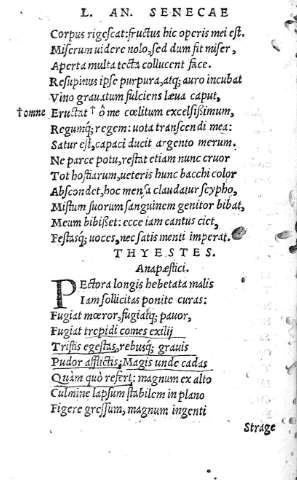 L. AN. SENECAE
Corpus rigescat: fructus hic operis mei est.
Miserum uidere nolo, sed dum fit miser,
Aperta multa tecta collucent face.
Resupinus ipse purpura, atq; auro incubat
Vino grauatum fulciens læua caput,
†omne Eructat † ô me cœlitum excelsißimum,
Regumq; regem: uota transcendi mea:
Satur est, capaci ducit argento merum.
Ne parce potu, restat etiam nunc cruor
Tot hostiarum, ueteris hunc bacchi color
Abscondet, hoc mensa claudatur scypho,
Mistum suorum sanguinem genitor bibat,
Meum bibißet: ecce iam cantus ciet,
Festasq; uoces, nec satis menti imperat.
THYESTES.
Anapæstici.
PEctora longis hebetata malis
Iam sollicitas ponite curas:
Fugiat mœror, fugiatq; pauor,
Fugiat trepidi comes exilij
Tristis egestas, rebusq; grauis
Pudor afflictis: Magis unde cadas
Quàm quò refert: magnum ex alto
Culmine lapsum stabilem in plano
Figere gressum, magnum ingenti
Strage